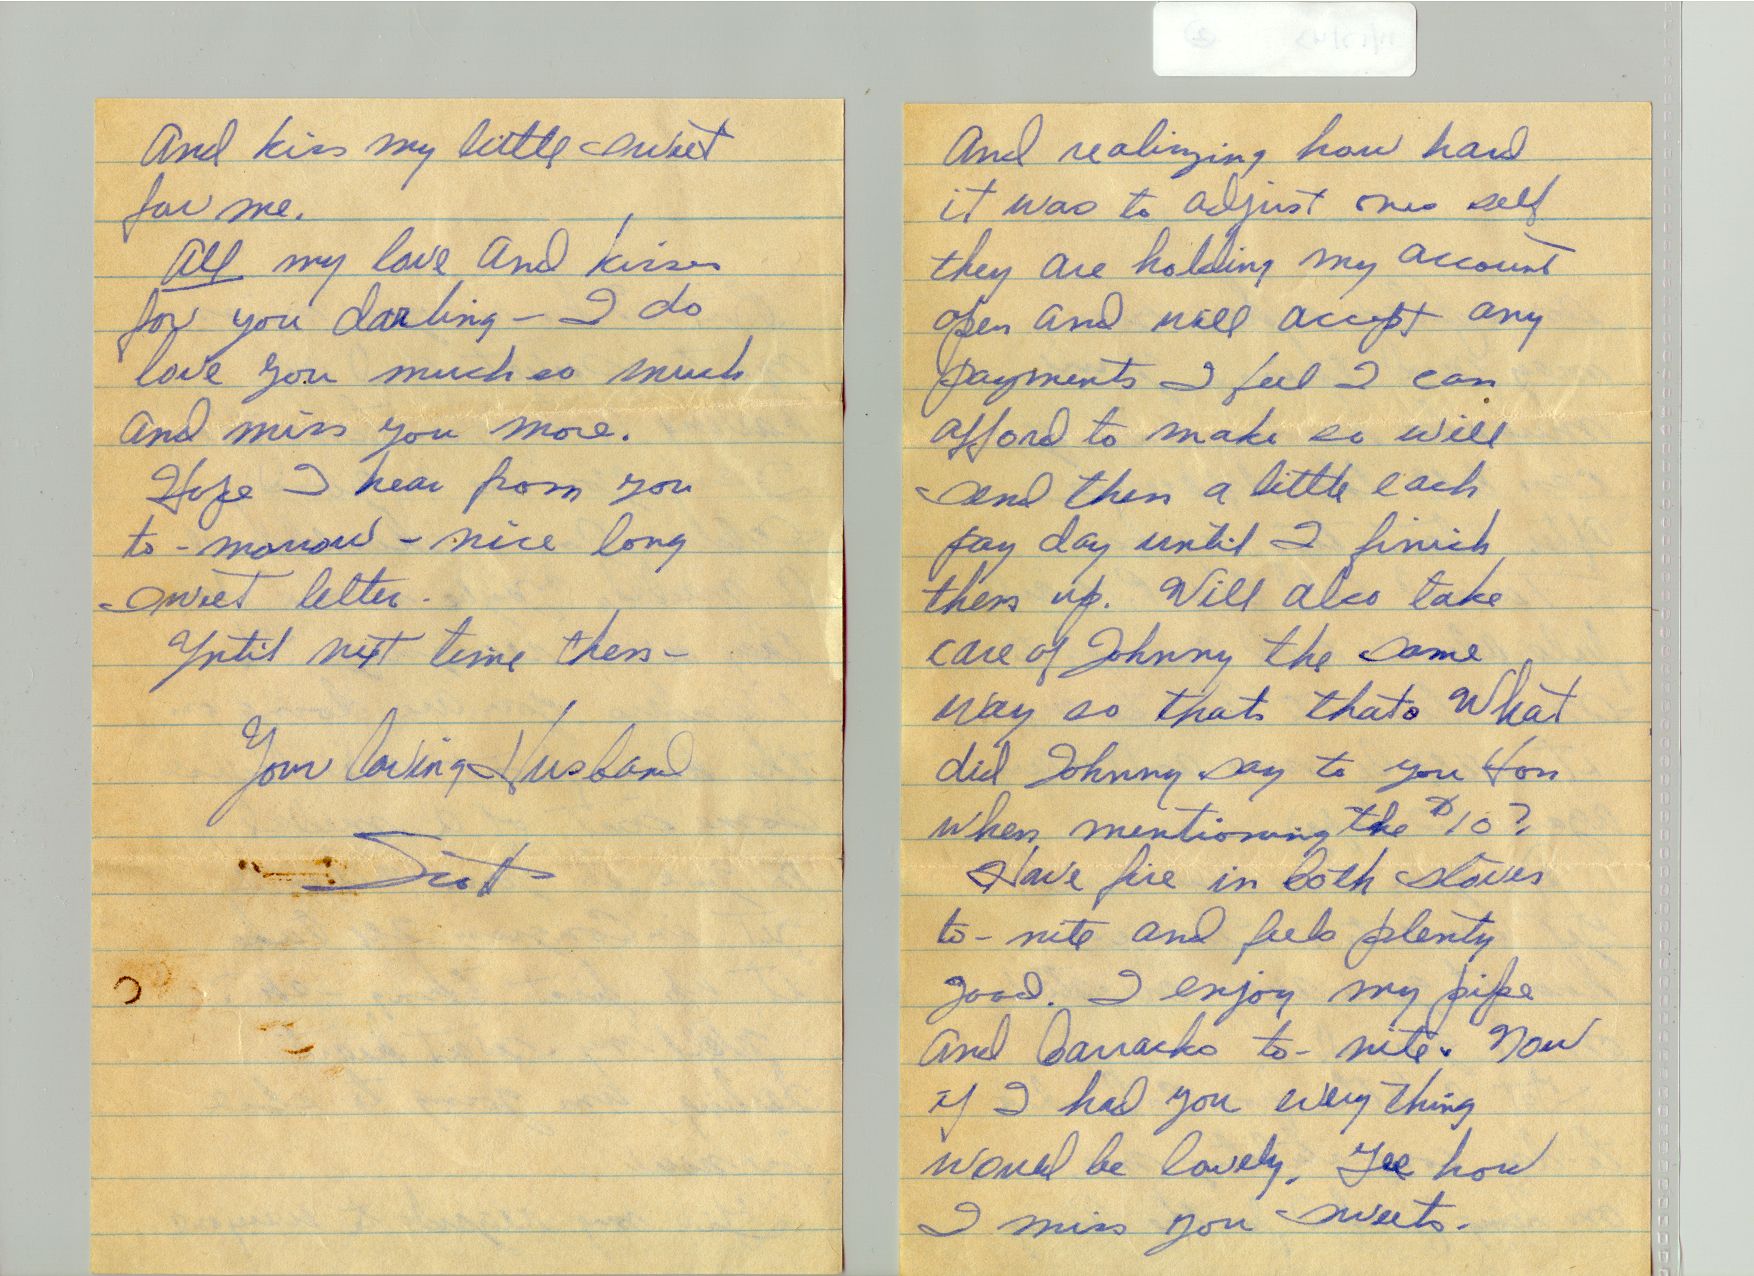 And kiss my little sweet
for me.
All my love and kisses
for you darling - I do
love you much so much
and miss you more.
Hope I hear from you
to-morrow - nice long
sweet letter.
Until next time then -
Your loving Husband
Scott
And realizing how hard
it was to adjust ones self
they are holding my account
open and will accept any
payments I feel I can
afford to make so will
send them a little each
pay day until I finish
them up. Will also take
care of Johnny the same
way so thats thats What
did Johnny say to you Hon
when mentioning the $10?
Have fire in both stoves
to-nite and feels plenty
good. I enjoy my pipe
and barracks to-nite. Now
if I had you everything
would be lovely. Gee how
I miss you sweets.